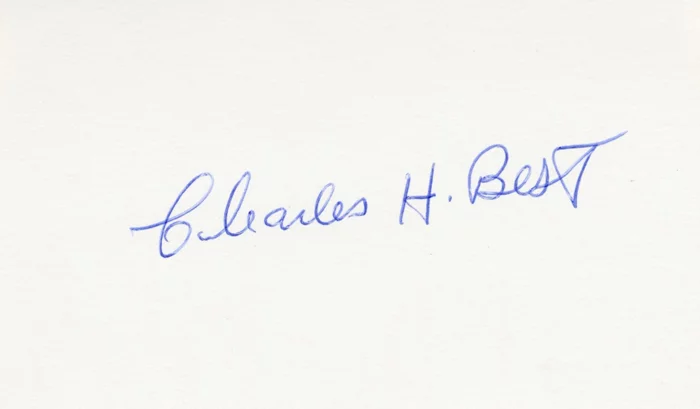 Charles H. Best